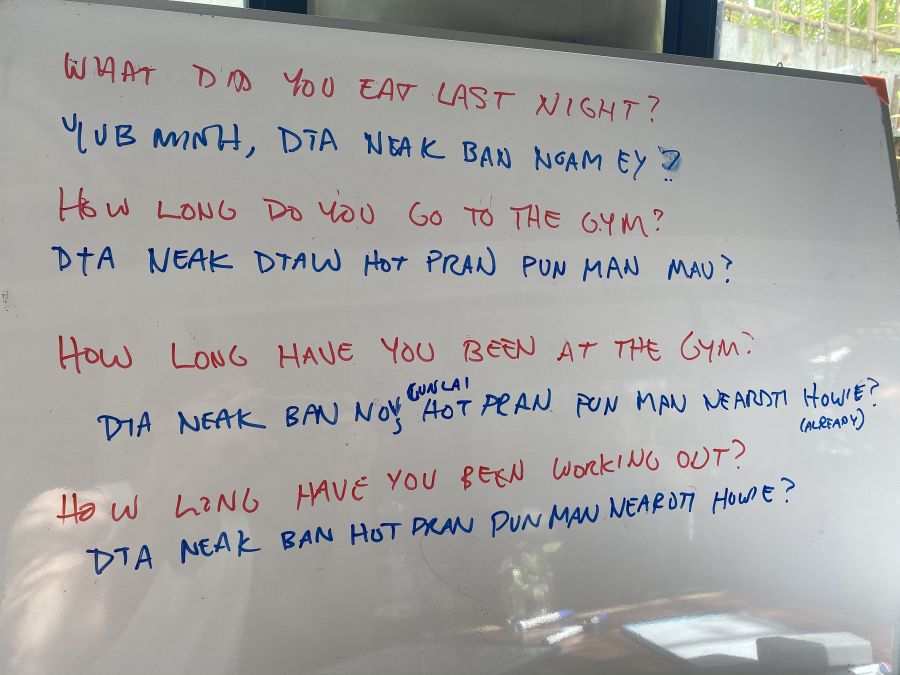 WHAT DID YOU EAT LAST NIGHT?
YUB MINH, DTA NEAK BAN NGAM EY?
HOW LONG DO YOU GO TO THE GYM?
DTA NEAK DTAW HOT PRAN PUN MAN MAU?
HOW LONG HAVE YOU BEEN AT THE GYM?
GUNLAI
DTA NEAK BAN NOV HOT PRAN PUN MAN NEARDTI HOWIE?
(ALREADY)
HOW LONG HAVE YOU BEEN WORKING OUT?
DTA NEAK BAN HOT PRAN PUN MAN NEARDTI HOWIE?